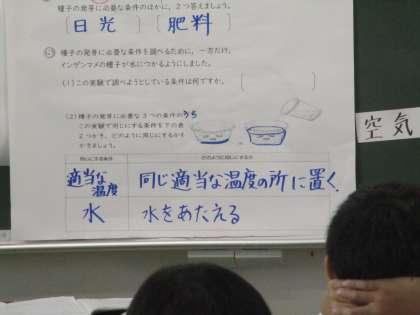 種子の発芽に必要な条件のほかに、2つ答えましょう。
〔日光〕〔肥料〕
⑤ 種子の発芽に必要な条件を調べるために、一方だけ、
インゲンマメの種子が水につかるようにしました。
(1) この実験で調べようとしている条件は何ですか。
(2) 種子の発芽に必要な3つの条件のうち
この実験で同じにする条件を下の表に
2つかき、どのように同じにするかも
かきましょう。
同じにする条件 どのように同じにするか
適当な温度 同じ適当な温度の所に置く。
水 水をあたえる
空気